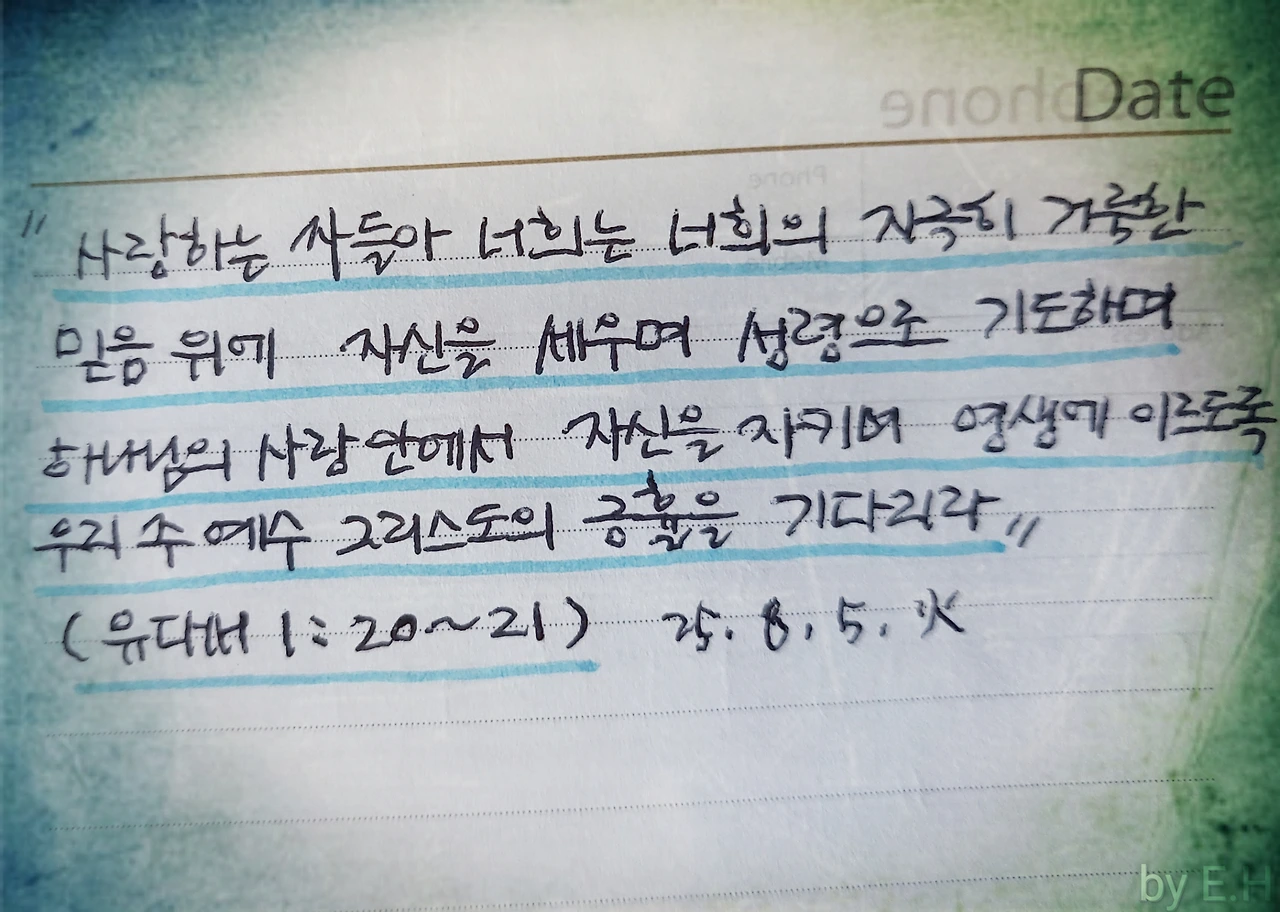 Date
"사랑하는 자들아 너희는 너희의 지극히 거룩한
믿음 위에 자신을 세우며 성령으로 기도하며
하나님의 사랑 안에서 자신을 지키며 영생에 이르도록
우리 주 예수 그리스도의 긍휼을 기다리라"
(유다서 1:20~21) 25. 8. 5. 火
by E.H